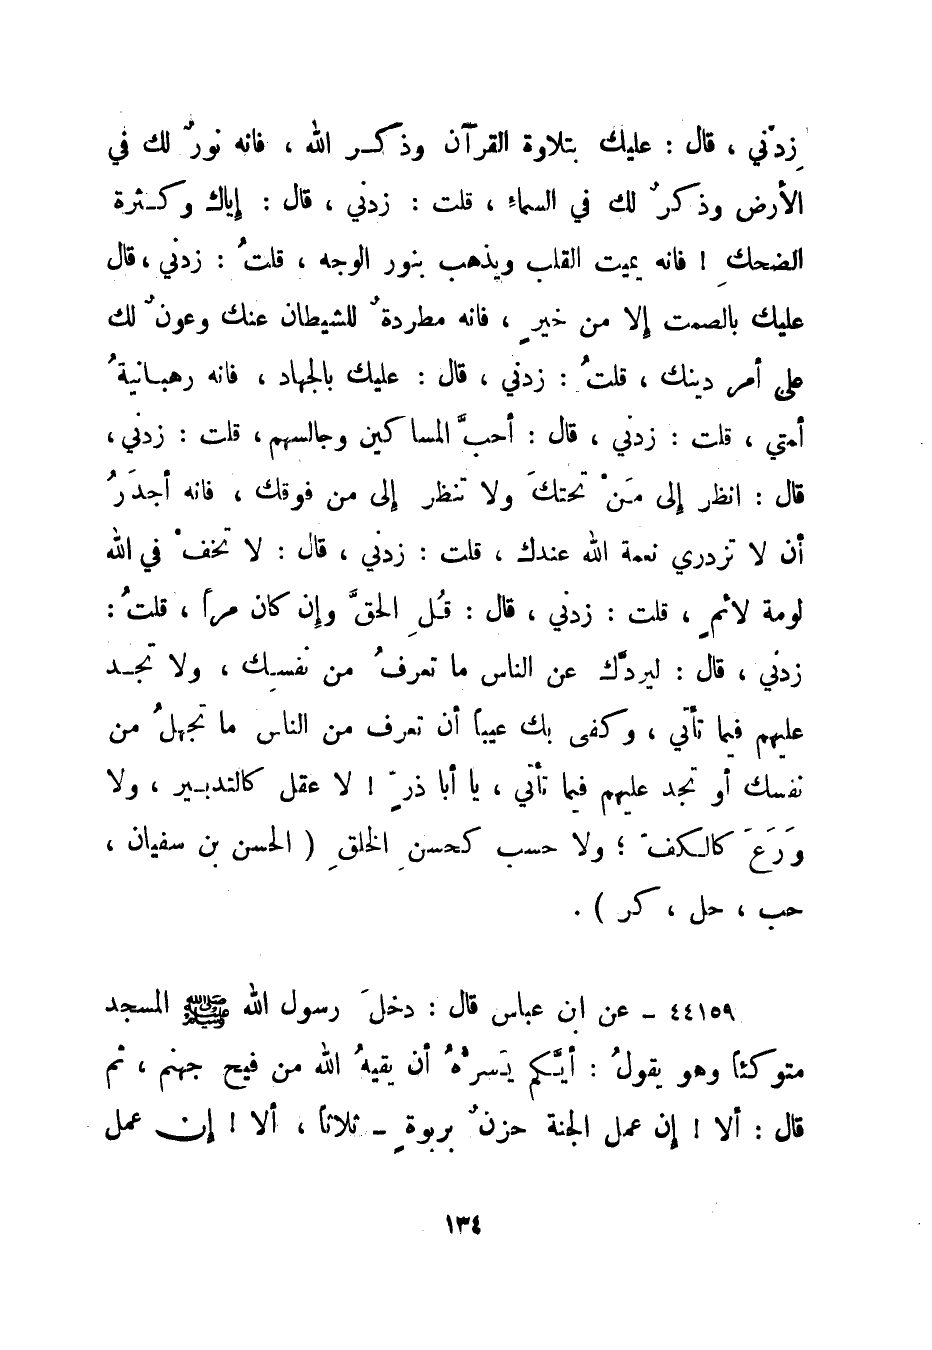 زِدْني ، قال : عليك بتلاوة القرآن وذكر الله ، فانه نورٌ لك في
الأرض وذكرٌ لك في السماء ، قلت : زدني ، قال : إياك وكثرة
الضحكِ ! فانه يميت القلب ويذهب بنور الوجه ، قلتُ : زدني ، قال
عليك بالصمت إلا من خيرٍ ، فانه مطردةٌ للشيطان عنك وعونٌ لك
على أمر دينك ، قلتُ : زدني ، قال : عليك بالجهاد ، فانه رهبانيةُ
أمتي ، قلت : زدني ، قال : أحبَّ المساكين وجالسهم ، قلت : زدني ،
قال : انظر إلى مَنْ تحتكَ ولا تنظر إلى من فوقك ، فانه أجدَرُ
أن لا تزدري نعمة الله عندك ، قلت : زدني ، قال : لا تخفْ في الله
لومة لائمٍ ، قلت : زدني ، قال : قُلِ الحقَّ وإن كان مراً ، قلتُ :
زدني ، قال : ليردَّك عن الناس ما تعرفُ من نفسِك ، ولا تجد
عليهم فيما تأتي ، وكفى بك عيباً أن تعرف من الناس ما تجهلُ من
نفسك أو تجد عليهم فيما تأتي ، يا أبا ذرٍّ ! لا عقل كالتدبير ، ولا
وَرَعَ كالكفّ ؛ ولا حسب كحسنِ الخلقِ ( الحسن بن سفيان ،
حب ، حل ، كر ) .
٤٤١٥٩ ـ عن ابن عباس قال : دخلَ رسول الله ﷺ المسجد
متوكئاً وهو يقولُ : أيُّكم يَسرُّهُ أن يقيهُ الله من فيح جهنم ، ثم
قال : ألا ! إن عمل الجنة حزنٌ بربوةٍ ـ ثلاثاً ، ألا ! إن عمل
١٣٤